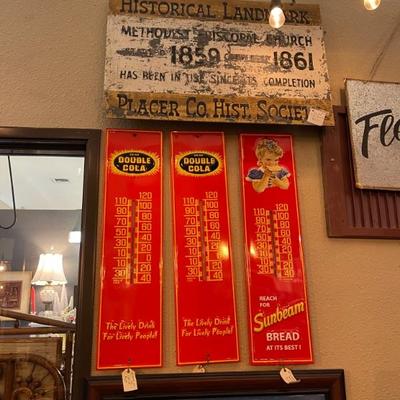 HISTORICAL LANDMARK
METHODIST EPISCOPAL CHURCH
1859 1861
HAS BEEN IN USE SINCE ITS COMPLETION
PLACER CO. HIST. SOCIETY
DOUBLE
COLA
120
110 100
90 80
70 60
50 40
30 20
10 0
The Lively Drink
For Lively People!
DOUBLE
COLA
120
110 100
90 80
70 60
50 40
30 20
10 0
The Lively Drink
For Lively People!
120
110 100
90 80
70 60
50 40
30 20
10 0
REACH FOR
Sunbeam
BREAD
AT ITS BEST!
Fle